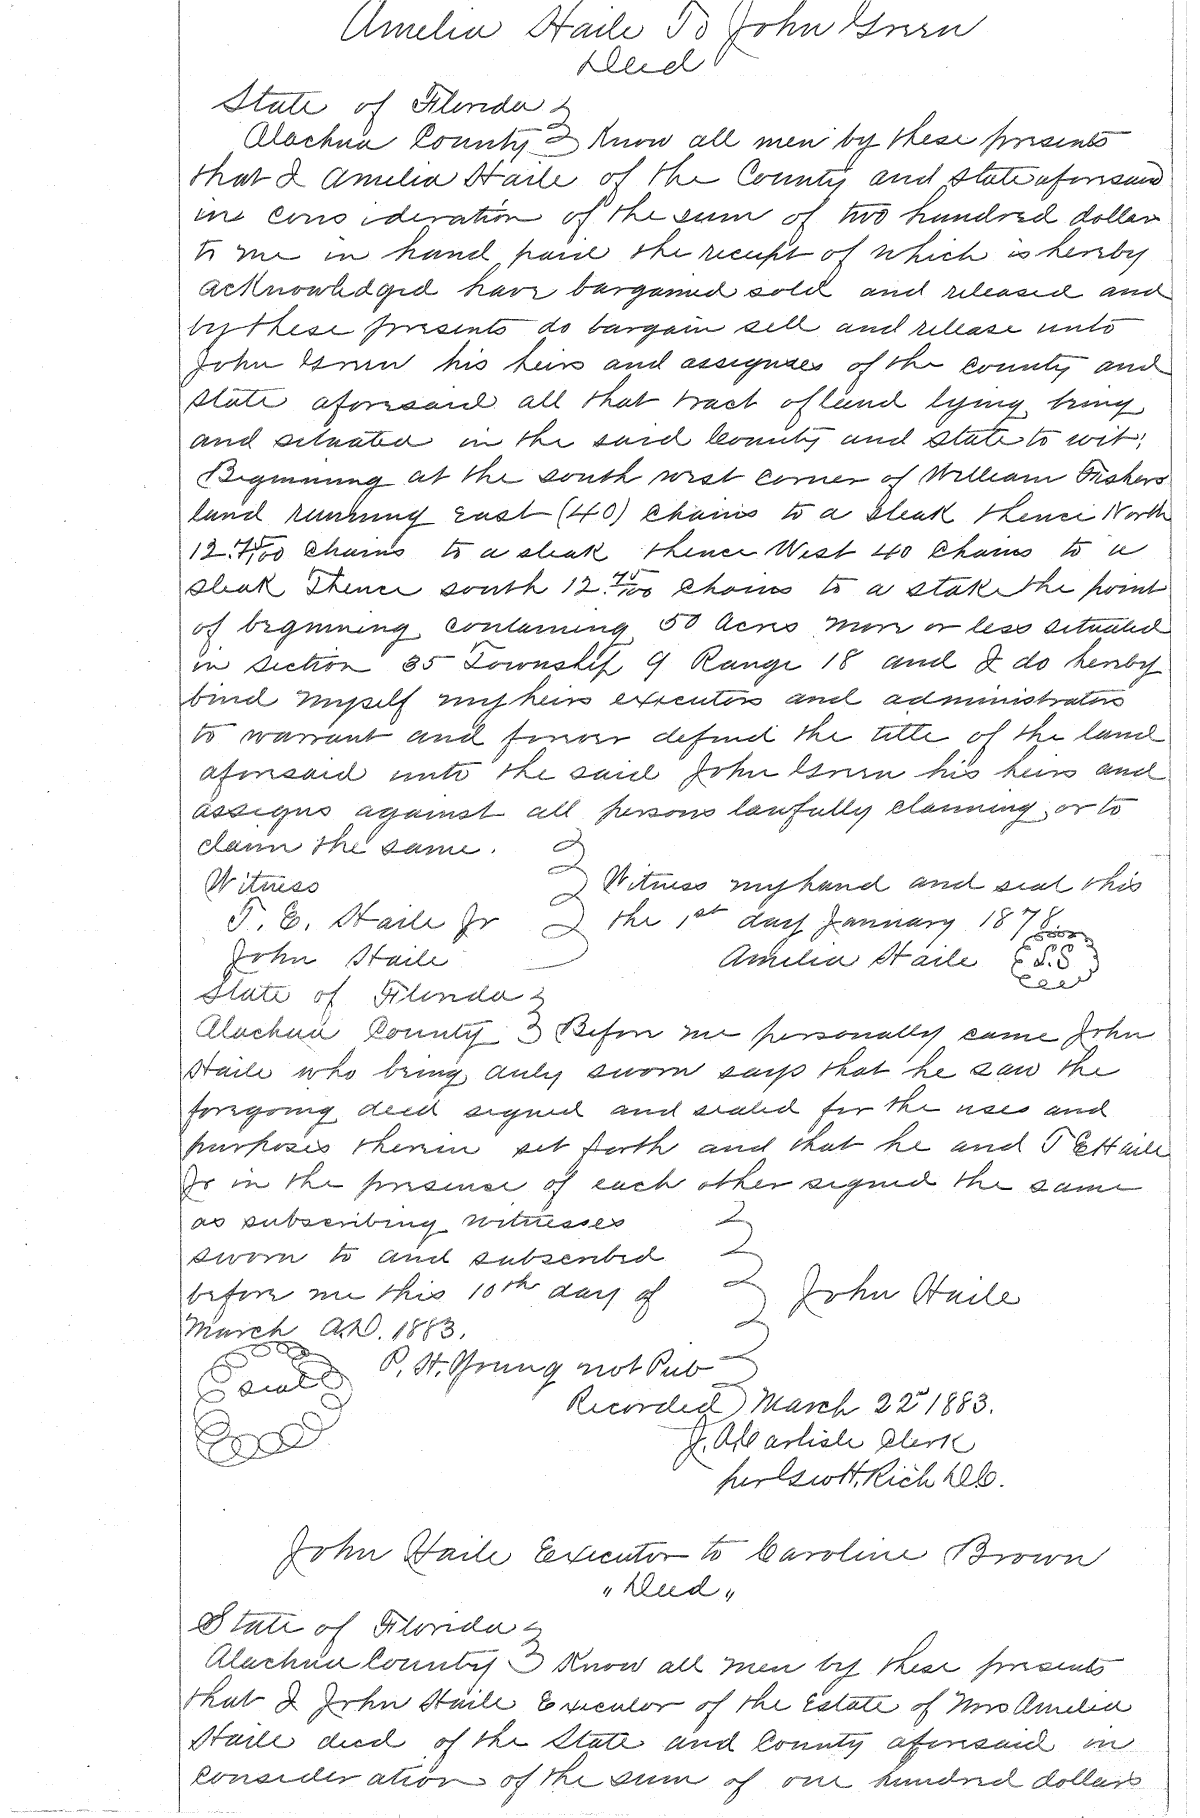 Amelia Haile To John Green
Deed
State of Florida }
Alachua County } Know all men by these presents
that I Amelia Haile of the County and state aforesaid
in consideration of the sum of two hundred dollars
to me in hand paid the receipt of which is hereby
acknowledged have bargained sold and released and
by these presents do bargain sell and release unto
John Green his heirs and assignees of the county and
state aforesaid all that tract of land lying being
and situated in the said County and state to wit;
Beginning at the south west corner of William Fishers
land running east (40) chains to a steak thence North
12.75/100 chains to a steak thence West 40 chains to a
steak Thence south 12.75/100 chains to a stake the point
of beginning containing 50 acres more or less situated
in section 35 Township 9 Range 18 and I do hereby
bind myself my heirs executors and administrators
to warrant and forever defend the title of the land
aforesaid unto the said John Green his heirs and
assigns against all persons lawfully claiming or to
claim the same. }
Witness } Witness my hand and seal this
T. E. Haile Jr } the 1st day January 1878.
John Haile Amelia Haile L.S
State of Florida }
Alachua County } Before me personally came John
Haile who being duly sworn says that he saw the
foregoing deed signed and sealed for the uses and
purposes therein set forth and that he and T E Haile
Jr in the presence of each other signed the same
as subscribing witnesses }
sworn to and subscribed }
before me this 10th day of } John Haile
March A.D. 1883. }
seal P. H. Young not Pub
Recorded March 22nd 1883.
J. A. Carlisle Clerk
per Geo H. Rich D.C.
John Haile Executor to Caroline Brown
"Deed"
State of Florida }
Alachua County } Know all men by these presents
that I John Haile Executor of the Estate of Mrs Amelia
Haile decd of the State and County aforesaid in
consideration of the sum of one hundred dollars